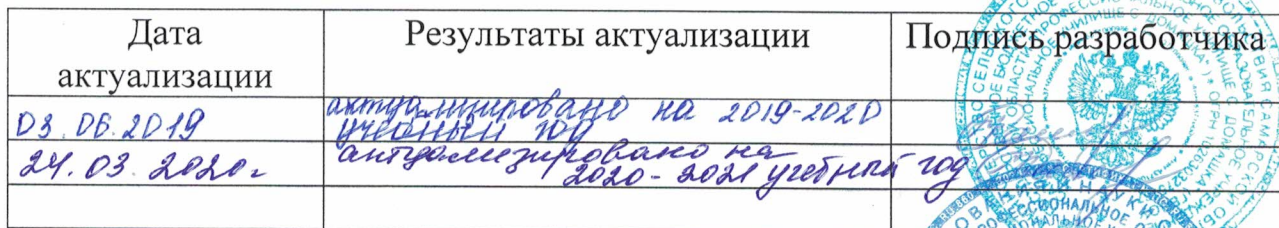 Дата
актуализации
Результаты актуализации
Подпись разработчика
03.06.2019
актуализировано на 2019-2020
учебный год
24.03.2020г
актуализировано на
2020-2021 учебный год